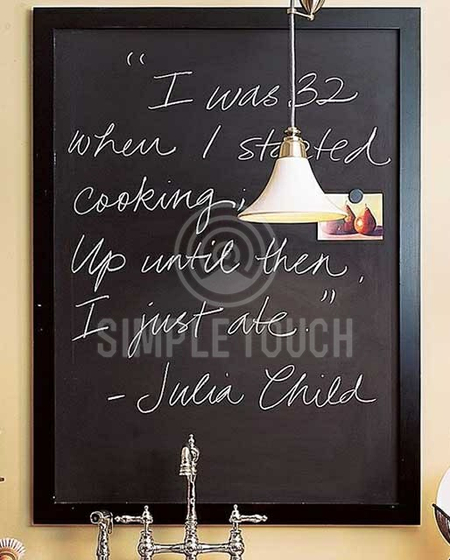 "I was 32
when I started
cooking;
Up until then,
I just ate."
- Julia Child
SIMPLE TOUCH